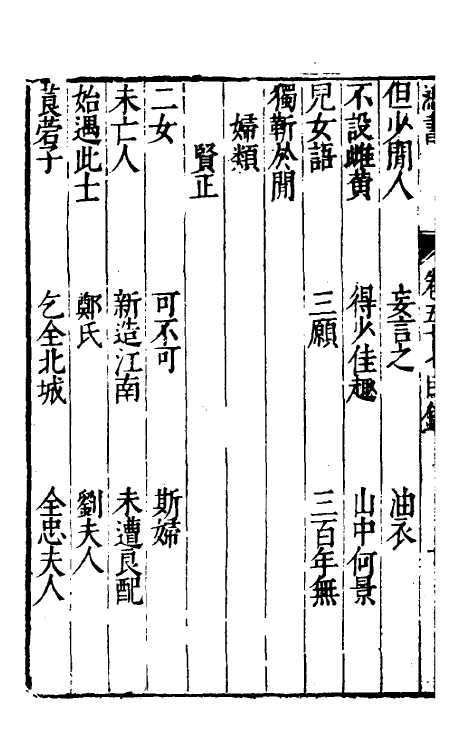 但少閒人　妄言之　油衣
不設雌黄　得少佳趣　山中何景
兒女語　三願　三百年無
獨靳於閒
婦類
賢正
二女　可不可　斯婦
未亡人　新造江南　未遭良配
始遇此士　鄭氏　劉夫人
莨菪子　乞全北城　全忠夫人